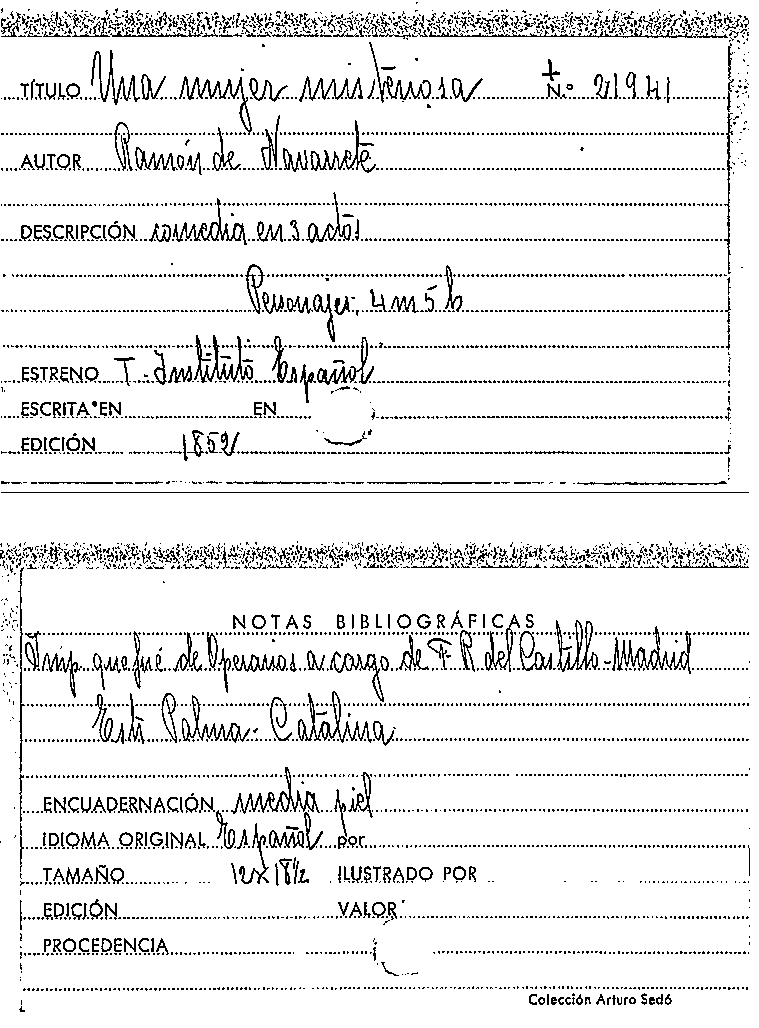 TÍTULO Una mujer misteriosa N.º 21941
AUTOR Ramón de Navarrete
DESCRIPCIÓN comedia en 3 actos
Personajes, 4 m 5 h
ESTRENO T. Instituto Español
ESCRITA EN EN
EDICIÓN 1852
NOTAS BIBLIOGRÁFICAS
Imp que fué de Operarios a cargo de F R del Castillo - Madrid
Palma - Catalina
ENCUADERNACIÓN media piel
IDIOMA ORIGINAL Español por
TAMAÑO 12x18½ ILUSTRADO POR
EDICIÓN VALOR
PROCEDENCIA
Colección Arturo Sedó